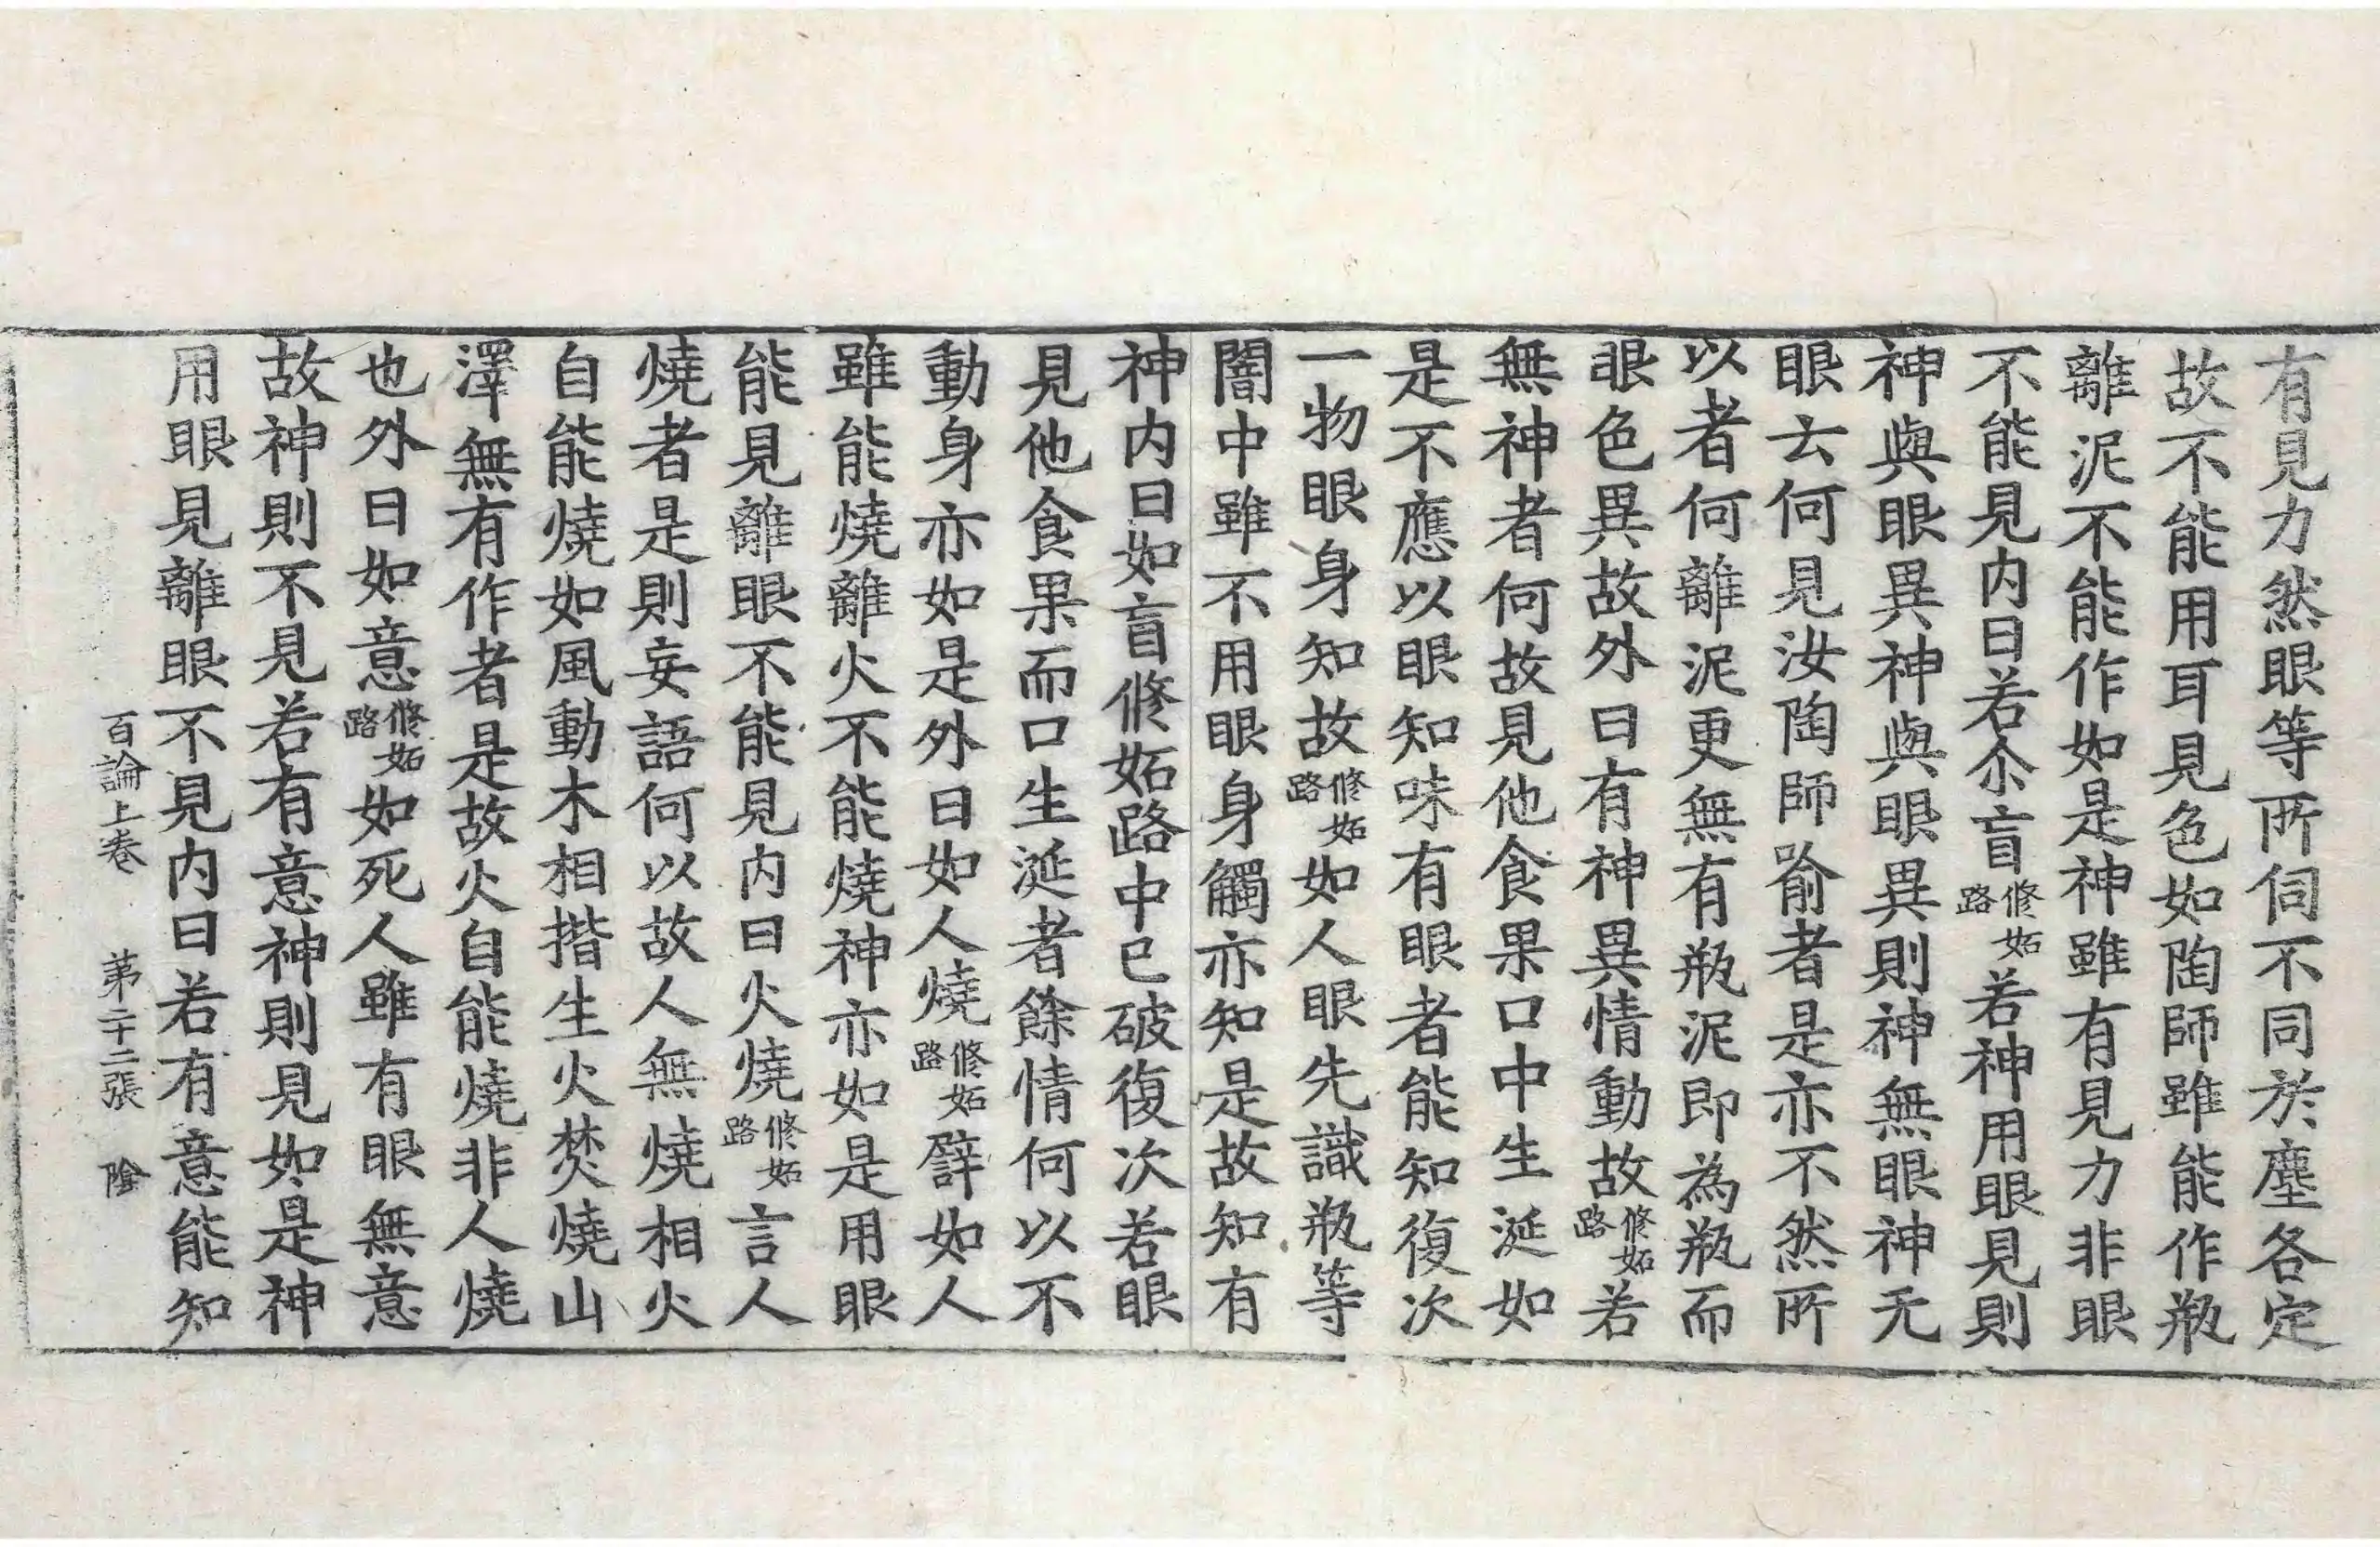 有見力然眼等所伺不同於塵各定
故不能用耳見色如陶師雖能作瓶
離泥不能作如是神雖有見力非眼
不能見内曰若尒盲修妬路若神用眼見則
神與眼異神與眼異則神無眼神无
眼云何見汝陶師喻者是亦不然所
以者何離泥更無有瓶泥即為瓶而
眼色異故外曰有神異情動故修妬路若
無神者何故見他食果口中生涎如
是不應以眼知味有眼者能知復次
一物眼身知故修妬路如人眼先識瓶等
闇中雖不用眼身觸亦知是故知有
神内曰如盲修妬路中已破復次若眼
見他食果而口生涎者餘情何以不
動身亦如是外曰如人燒修妬路譬如人
雖能燒離火不能燒神亦如是用眼
能見離眼不能見内曰火燒修妬路言人
燒者是則妄語何以故人無燒相火
自能燒如風動木相揩生火焚燒山
澤無有作者是故火自能燒非人燒
也外曰如意修妬路如死人雖有眼無意
故神則不見若有意神則見如是神
用眼見離眼不見内曰若有意能知
百論上卷 第二十二張 陰